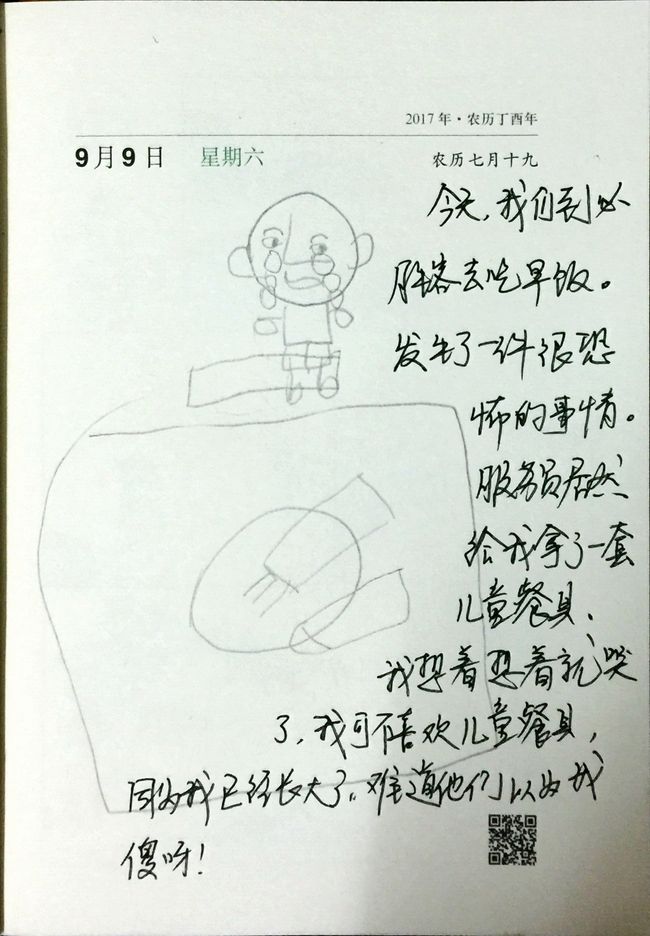 2017年·农历丁酉年
9月9日 星期六 农历七月十九
今天,我们到必
胜客去吃早饭。
发生了一件很恐
怖的事情。
服务员居然
给我拿了一套
儿童餐具、
我想着想着就哭
了,我可不喜欢儿童餐具,
因为我已经长大了。难道他们以为我
傻呀!